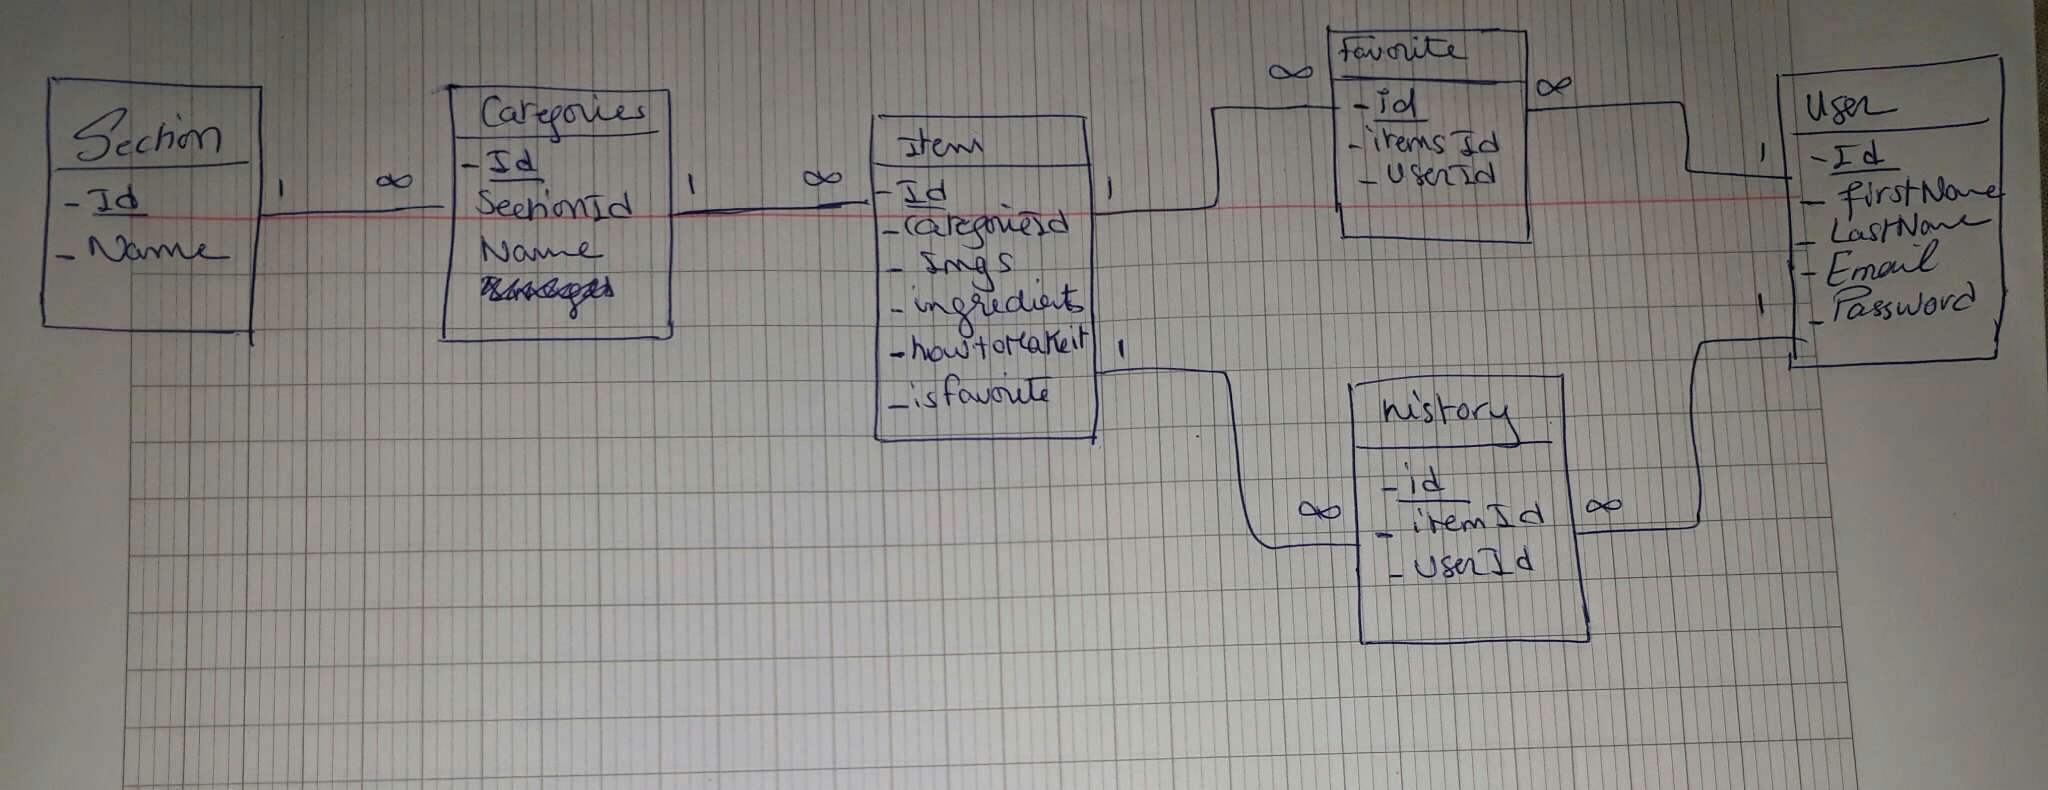 Section
- Id
- Name
1
∞
Categories
- Id
SectionId
Name
1
∞
Item
- Id
- CategorieId
- Imgs
- ingredients
- howtoMakeit
- isfavorite
1
∞
favorite
- id
- itemsId
- userId
∞
1
User
- Id
- firstName
- LastName
- Email
- Password
1
1
∞
history
- id
- itemId
- userId
∞